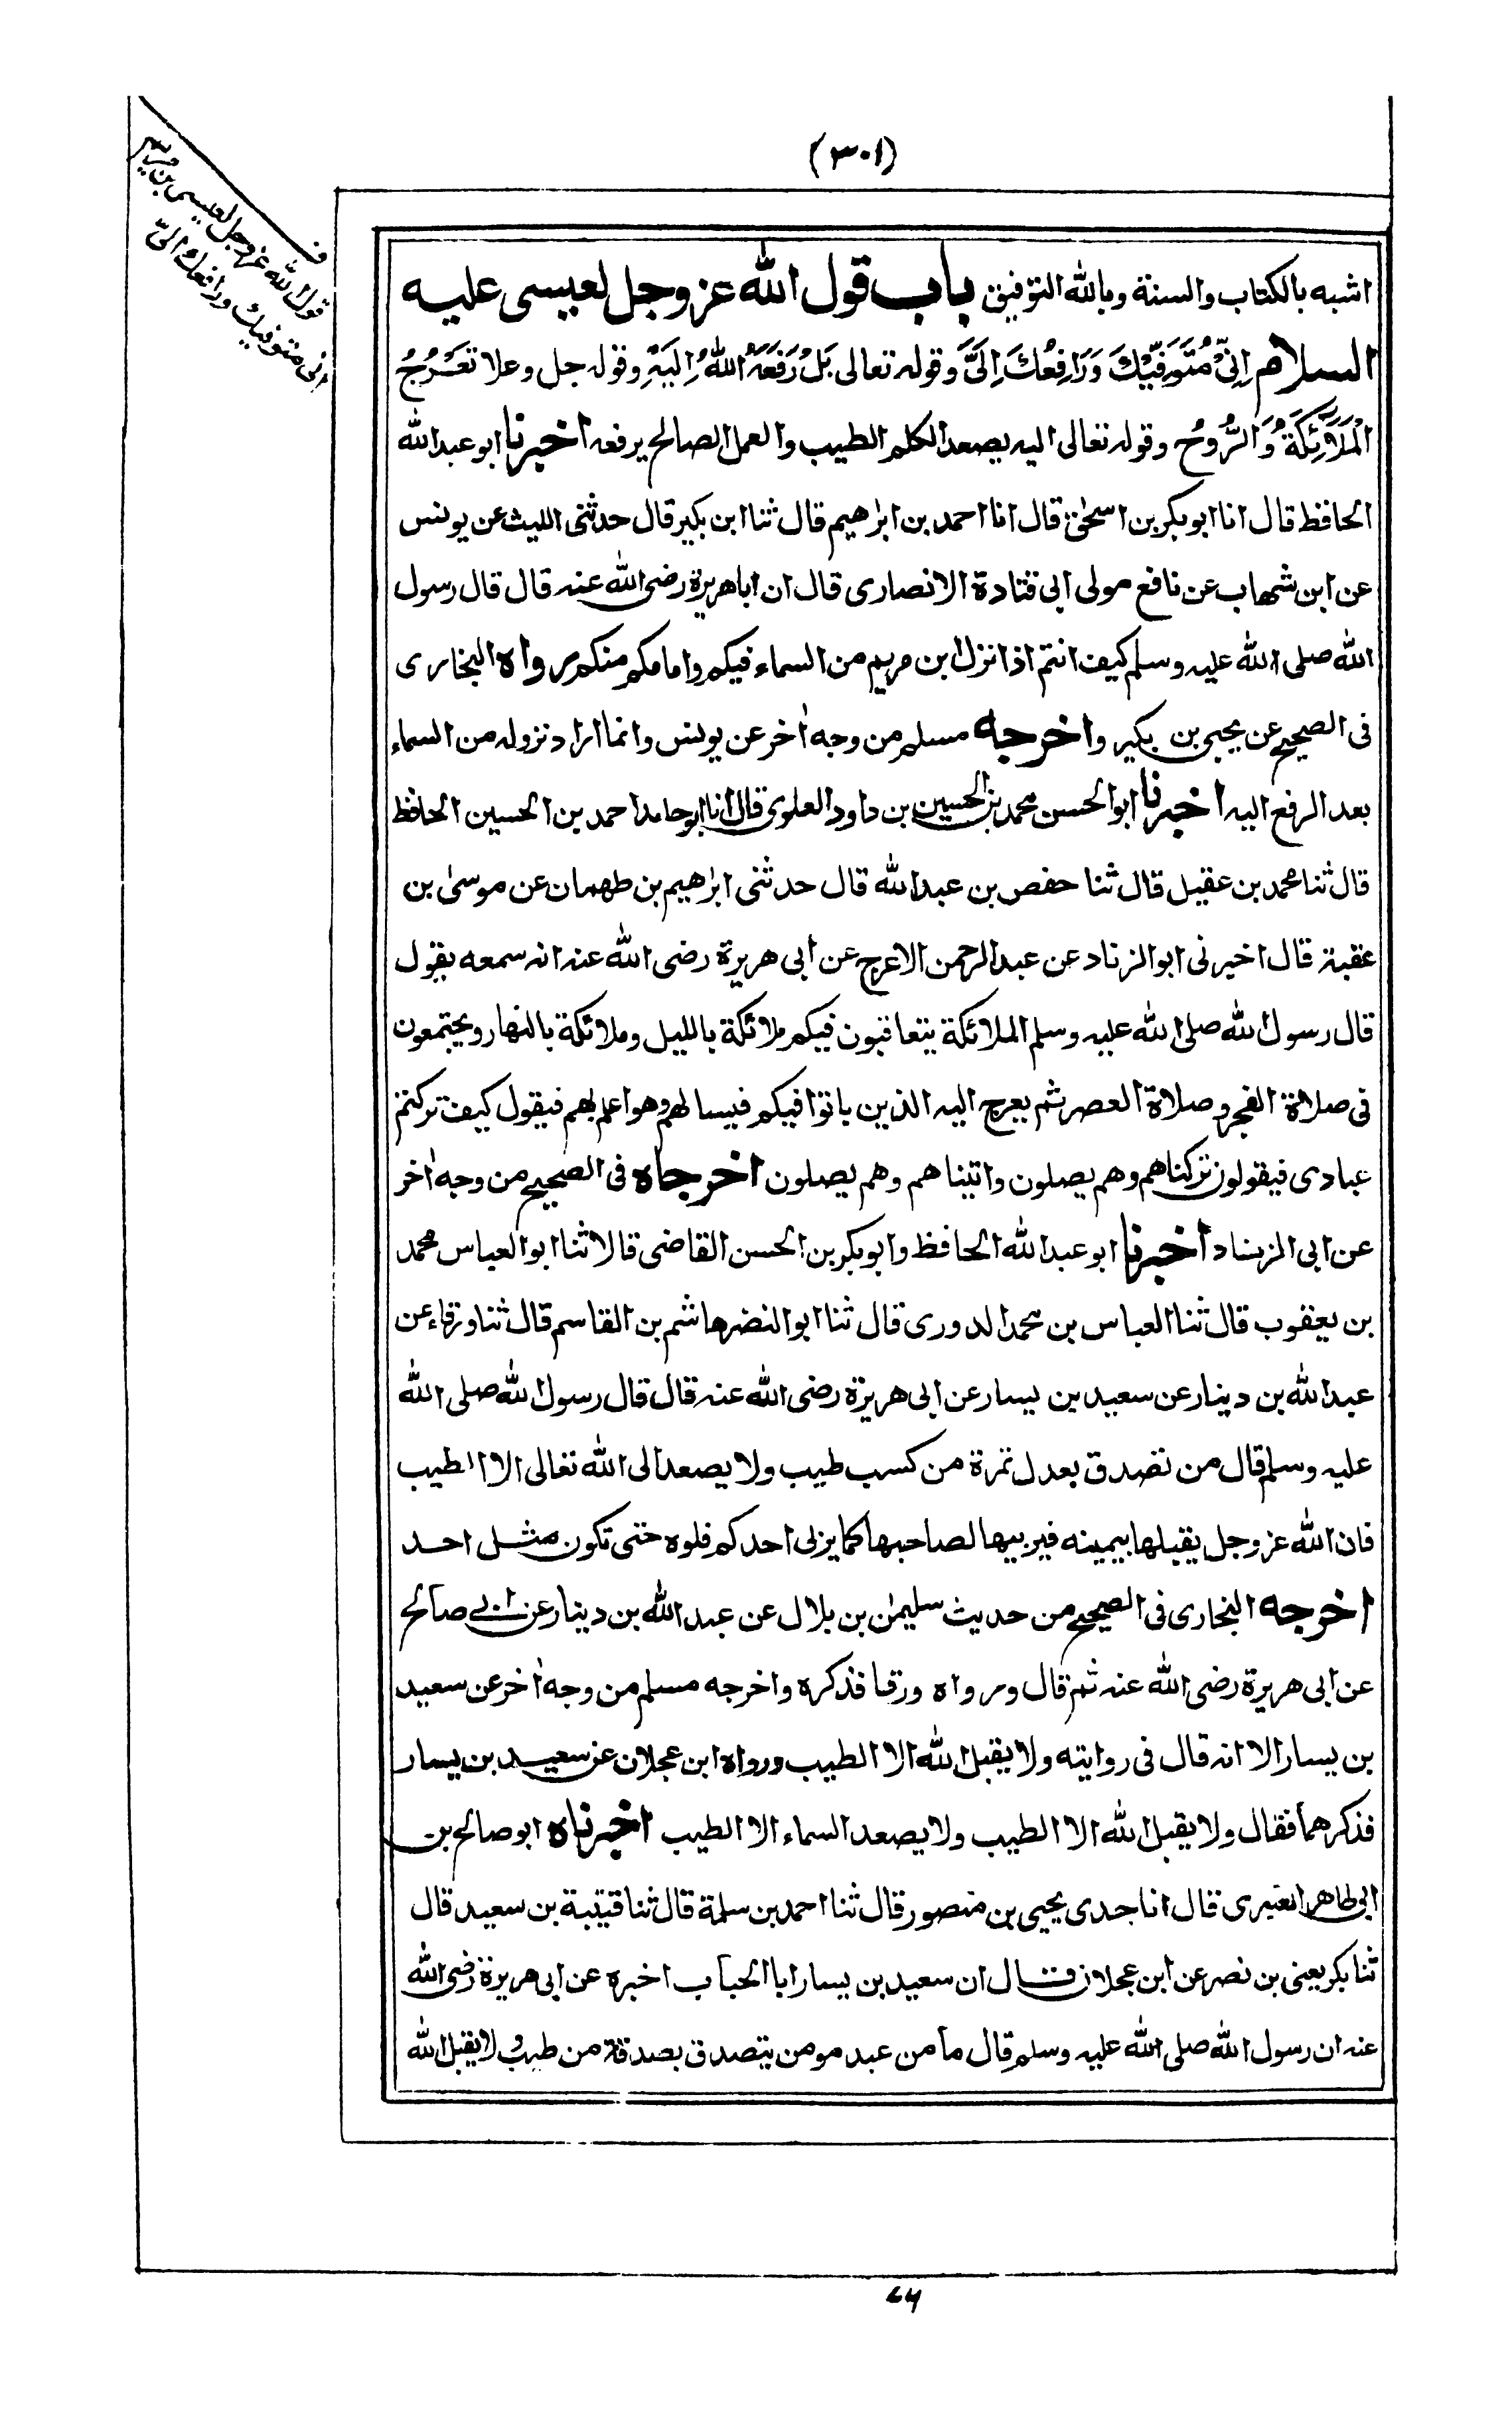 (٣٠١)
ف
قول الله عز وجل لعيسى بن مريم
انى متوفيك ورافعك الىّ
اشبه بالكتاب والسنة وبالله التوفيق باب قول الله عز وجل لعيسى عليه
السلام اِنِّىْ مُتَوَفِّيْكَ وَرَافِعُكَ اِلَىَّ وقوله تعالى بَلْ رَفَعَهُ اللهُ اِلَيْهِ وقوله جل وعلا تَعْرُجُ
الْمَلَائِكَةُ وَالرُّوحُ وقوله تعالى اليه يصعد الكلم الطيب والعمل الصالح يرفعه اخبرنا ابو عبد الله
الحافظ قال انا ابو بكر بن اسحٰق قال انا احمد بن ابرٰهيم قال ثنا ابن بكير قال حدثنى الليث عن يونس
عن ابن شهاب عن نافع مولى ابى قتادة الانصارى قال ان ابا هريرة رضى الله عنه قال قال رسول
الله صلى الله عليه وسلم كيف انتم اذا نزل ابن مريم من السماء فيكم وامامكم منكم رواه البخارى
فى الصحيح عن يحيى بن بكير واخرجه مسلم من وجه اٰخر عن يونس وانما اراد نزوله من السماء
بعد الرفع اليه اخبرنا ابو الحسن محمد بن الحسين بن داود العلوى قال انا ابو حامد احمد بن الحسين الحافظ
قال ثنا محمد بن عقيل قال ثنا حفص بن عبد الله قال حدثنى ابرٰهيم بن طهمان عن موسىٰ بن
عقبة قال اخبرنى ابو الزناد عن عبد الرحمن الاعرج عن ابى هريرة رضى الله عنه انه سمعه يقول
قال رسول الله صلى الله عليه وسلم الملائكة يتعاقبون فيكم ملائكة بالليل وملائكة بالنهار ويجتمعون
فى صلاة الفجر وصلاة العصر ثم يعرج اليه الذين باتوا فيكم فيسالهم وهو اعلم بهم فيقول كيف تركتم
عبادى فيقولون تركناهم وهم يصلون واتيناهم وهم يصلون اخرجاه فى الصحيح من وجه اٰخر
عن ابى الزناد اخبرنا ابو عبد الله الحافظ وابو بكر بن الحسن القاضى قالا ثنا ابو العباس محمد
بن يعقوب قال ثنا العباس بن محمد الدورى قال ثنا ابو النضر هاشم بن القاسم قال ثنا ورقاء عن
عبد الله بن دينار عن سعيد بن يسار عن ابى هريرة رضى الله عنه قال قال رسول الله صلى الله
عليه وسلم قال من تصدق بعدل تمرة من كسب طيب ولا يصعد الى الله تعالى الا الطيب
فان الله عز وجل يقبلها بيمينه فيربيها لصاحبها كما يربى احدكم فلوه حتى تكون مثل احد
اخرجه البخارى فى الصحيح من حديث سليمٰن بن بلال عن عبد الله بن دينار عن ابى صالح
عن ابى هريرة رضى الله عنه ثم قال ورواه ورقا فذكره واخرجه مسلم من وجه اٰخر عن سعيد
بن يسار الا انه قال فى روايته ولا يقبل الله الا الطيب ورواه ابن عجلان عن سعيد بن يسار
فذكرهما فقال ولا يقبل الله الا الطيب ولا يصعد السماء الا الطيب اخبرناه ابو صالح بن
ابى طاهر العنبرى قال انا جدى يحيى بن منصور قال ثنا احمد بن سلمة قال ثنا قتيبة بن سعيد قال
ثنا بكر يعنى بن نصر عن ابن عجلان قال ان سعيد بن يسار ابا الحباب اخبره عن ابى هريرة رضى الله
عنه ان رسول الله صلى الله عليه وسلم قال ما من عبد مومن يتصدق بصدقة من طيب ولا يقبل الله
٧٦